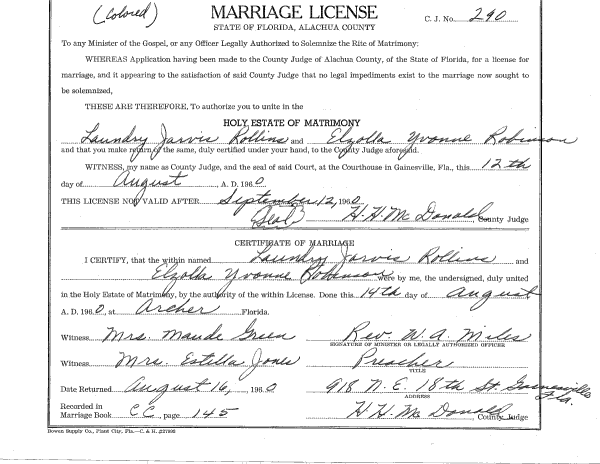 (Colored)
MARRIAGE LICENSE
C. J. No. 290
STATE OF FLORIDA, ALACHUA COUNTY
To any Minister of the Gospel, or any Officer Legally Authorized to Solemnize the Rite of Matrimony:
WHEREAS Application having been made to the County Judge of Alachua County, of the State of Florida, for a license for
marriage, and it appearing to the satisfaction of said County Judge that no legal impediments exist to the marriage now sought to
be solemnized,
THESE ARE THEREFORE, To authorize you to unite in the
HOLY ESTATE OF MATRIMONY
Laundry Jarvis Rollins and Elzolla Yvonne Robinson
and that you make return of the same, duly certified under your hand, to the County Judge aforesaid.
WITNESS, my name as County Judge, and the seal of said Court, at the Courthouse in Gainesville, Fla., this 12th
day of August A. D. 1960
THIS LICENSE NOT VALID AFTER September 12, 1960
(Seal) H. H. McDonald, County Judge
CERTIFICATE OF MARRIAGE
I CERTIFY, that the within named Laundry Jarvis Rollins and
Elzolla Yvonne Robinson were by me, the undersigned, duly united
in the Holy Estate of Matrimony, by the authority of the within License. Done this 14th day of August
A. D. 1960, at Archer Florida.
Witness Mrs. Maude Green Rev. W. A. Miles
SIGNATURE OF MINISTER OR LEGALLY AUTHORIZED OFFICER
Witness Mrs. Estella Jones Preacher
TITLE
Date Returned August 16, 1960 918 N. E. 18th St. Gainesville Fla.
ADDRESS
Recorded in
Marriage Book CC, page 145 H. H. McDonald, County Judge
Bowen Supply Co., Plant City, Fla.—C. & H.